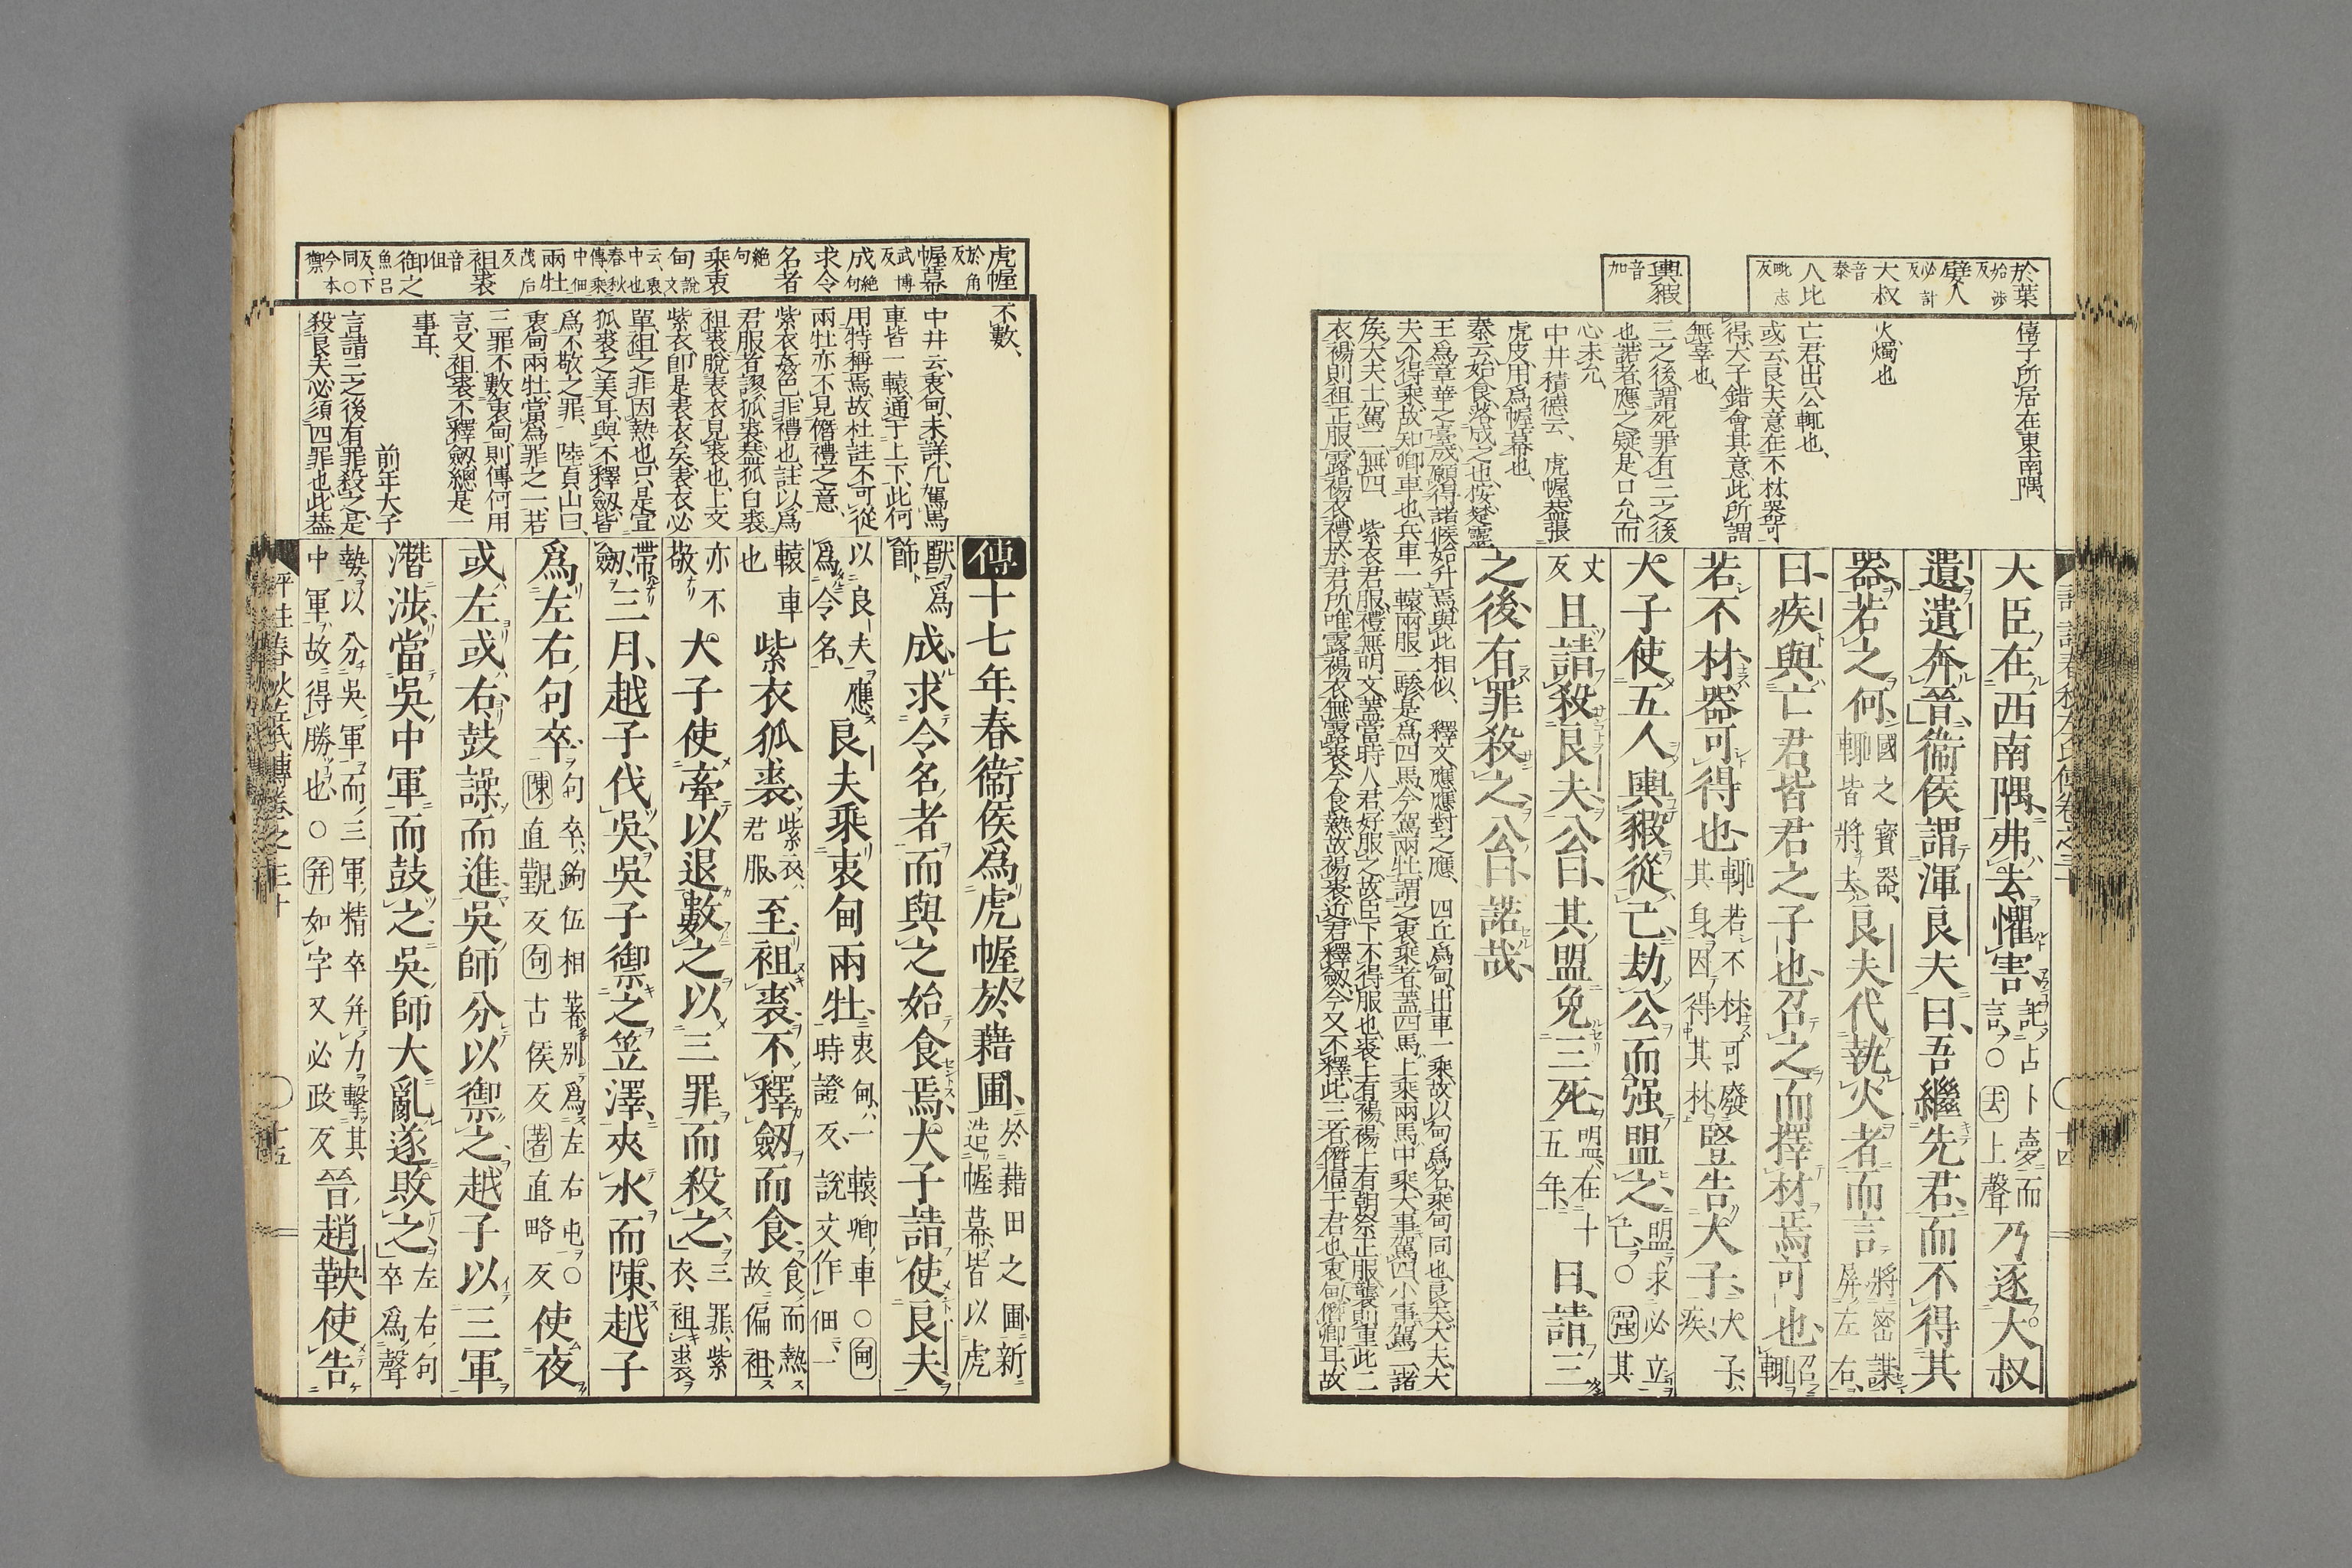 於葉
始渉反
嬖人
必計反
大叔
音泰
人比
毗志反
輿豭
音加
僖子所居在東南隅、
火燭也
亡君、出公輒也、
或云、良夫意在不材、器可
得、大子錯會其意、此所謂
無辜也、
三之後、謂死罪有三之後
也、諾者、應之疑、是口允而
心未允、
中井積德云、虎幄、蓋張
虎皮、用爲幄幕也、
大臣在西南隅、弗去懼害、託占卜夢而言、○去上聲乃逐大叔
遺、遺奔晉、衞侯謂渾良夫曰、吾繼先君、而不得其
器、若之何、國之寶器、輒皆將去良夫代執火者而言、將密謀、屏左右
曰、疾與亡君皆君之子也、召之而擇材焉可也、召輒
若不材、器可得也、輒若不材可廢、其身因得其材豎告大子、大子疾
大子使五人輿豭從己、劫公而强盟之、盟求必立己、○强其
丈反且請殺良夫、公曰、其盟免三死、盟在十五年、曰、請三
之後、有罪殺之、公曰、諾哉、
泰云、始食、落成之也、按、楚靈
王爲章華之臺成、願得諸侯始升焉、與此相似、 釋文、應應對之應、 四丘爲甸、出車一乘、故以甸爲名、乘甸同也、良夫、大夫、大
夫不得乘、故知卿車也、兵車一轅兩服、二驂是爲四馬、今駕兩牡、謂之衷乘者、蓋四馬上乘、兩馬中乘、大事駕四、小事駕二、諸
侯、大夫、士駕二、無四、 紫衣君服、禮無明文、蓋當時人君好服之、故臣下不得服也、裘上有裼、裼上有朝祭正服、襲則重此二
衣、裼則袒正服、露裼衣、禮、於君所唯露裼衣、無露裘、今食熱故裼裘、近君釋劒、今又不釋、此三者、僭偪于君也、衷甸、僭卿耳、故
虎幄
於角反
幄幕
武博反
成
絶句
求令
名者
絶句
乘衷
甸
說文云、衷中也、春秋傳、乘中佃
兩牡
茂后反
袒裘
音但
御之
魚呂反、下同、○今本禦
不數、
中井云、衷甸、未詳、凡駕馬
車皆一轅、通于上下、此何
用特稱焉、故杜註不可從、
兩牡亦不見僭禮之意、
紫衣姦色、非禮也、註以爲
君服者謬、狐裘、蓋狐白裘、
袒裘、脫表衣見裘也、上文
紫衣、卽是表衣矣、表衣必
單、袒之非因熱也、只是宣
狐裘之美耳、與不釋劒、皆
爲不敬之罪、 陸貞山曰、
衷甸兩牡、當爲罪之一、若
三罪不數衷甸、則傳何用
言、又袒裘不釋劒、總是一
事耳、
前年大子
言、請三之後有罪殺之、是
殺良夫、必須四罪也、此蓋
傳十七年、春、衞侯爲虎幄於藉圃、於藉田之圃、新造幄幕、皆以虎
獸爲飾成、求令名者、而與之始食焉、大子請使良夫、
以良夫應爲令名、良夫乘衷甸兩牡、衷甸、一轅、卿車○甸時證反、說文作佃、一
轅車也紫衣狐裘、紫衣、君服、至、袒裘、不釋劒而食、食而熱、故偏袒
亦不敬大子使牽以退、數之以三罪而殺之、三罪、紫衣、袒裘、
帶劒三月、越子伐吳、吳子禦之笠澤、夾水而陳、越子
爲左右句卒、句卒、鉤伍相著、別爲左右屯○陳直覲反句古侯反著直略反使夜
或左或右、鼓譟而進、吳師分以禦之、越子以三軍
潛涉、當吳中軍而鼓之、吳師大亂、遂敗之、左右句卒爲聲
勢、以分吳軍、而三軍精卒并力擊其中軍、故得勝也、○并如字又必政反晉趙鞅使告